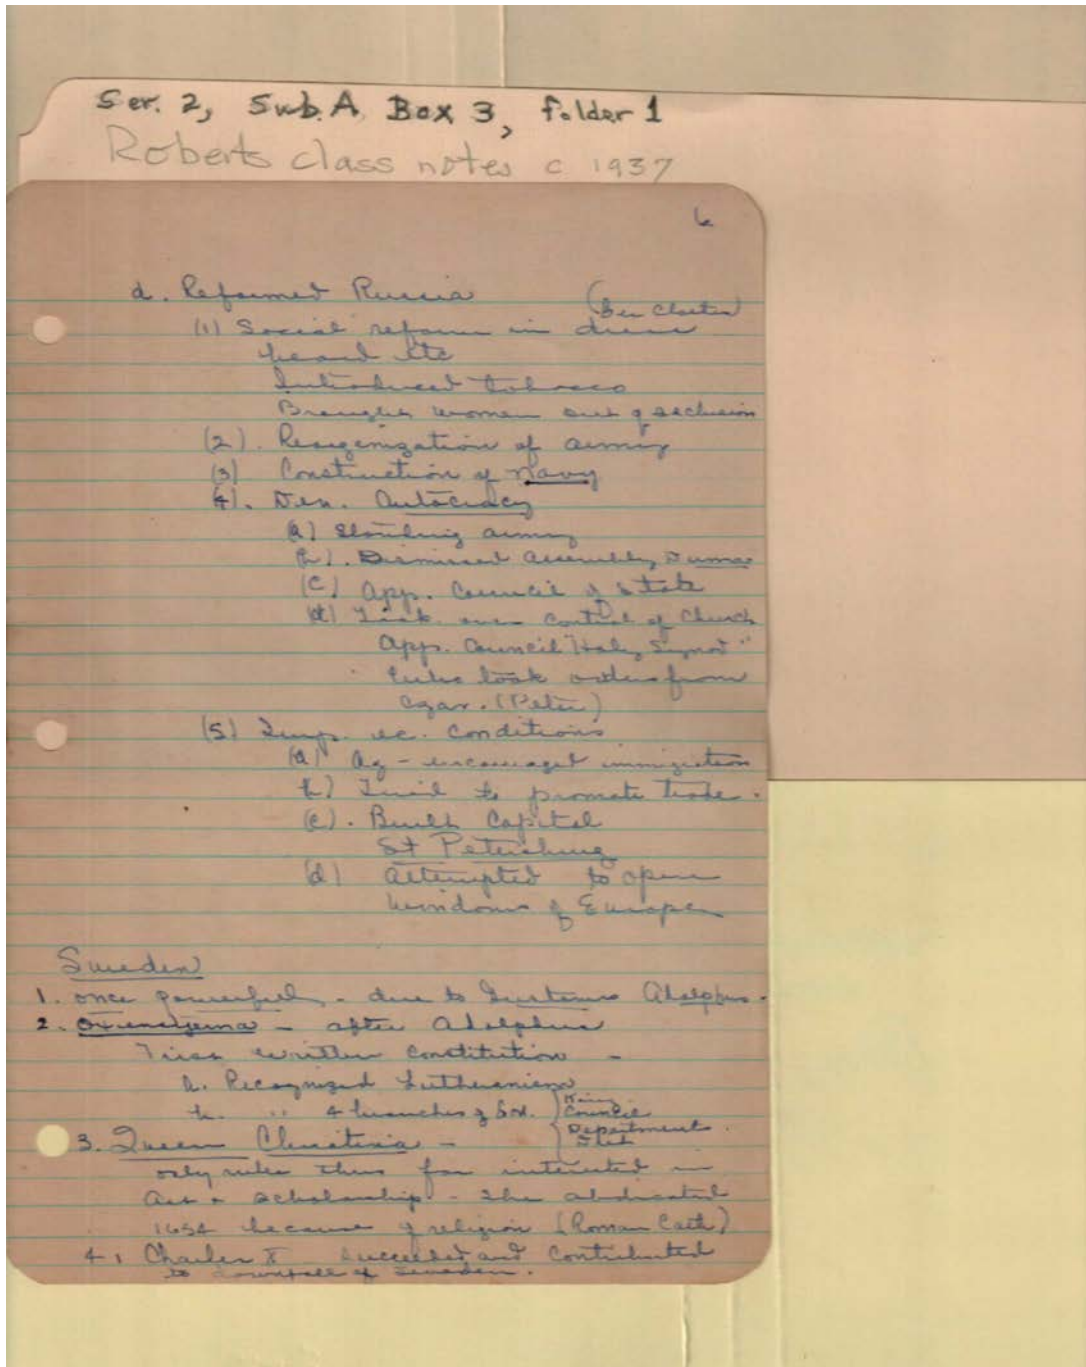 Ser. 2, Sub. A. Box 3, folder 1
Roberts class notes c 1937
6
d. Reformed Russia
(See Charter)
(1) Social reform in dress
beard etc
Introduced tobacco
Brought women out of seclusion
(2). Reorganization of army
(3) Construction of Navy
(4). Dev. Autocracy
(a) Standing army
(b). Dismissed assembly, Duma
(c) App. Council of State
(d) Took over control of Church
App. Council "Holy Synod"
who took orders from
czar. (Peter)
(5) Imp. ec. conditions
(a) Ag - encouraged immigration
b) Tried to promote trade.
(c). Built Capital
St Petersburg
(d) attempted to open
windows of Europe
Sweden
1. once powerful, - due to Gustavus Adolphus.
2. Oxenstjerna - after Adolphus
First written constitution -
a. Recognized Lutheranism
b. " 4 branches of Gov. { King
Council
Department.
Diet
3. Queen Christina -
only ruler thus far interested in
Art & scholarship. - She abdicated
1654 because of religion (Roman Cath)
4. Charles X succeeded and contributed
to downfall of Sweden.